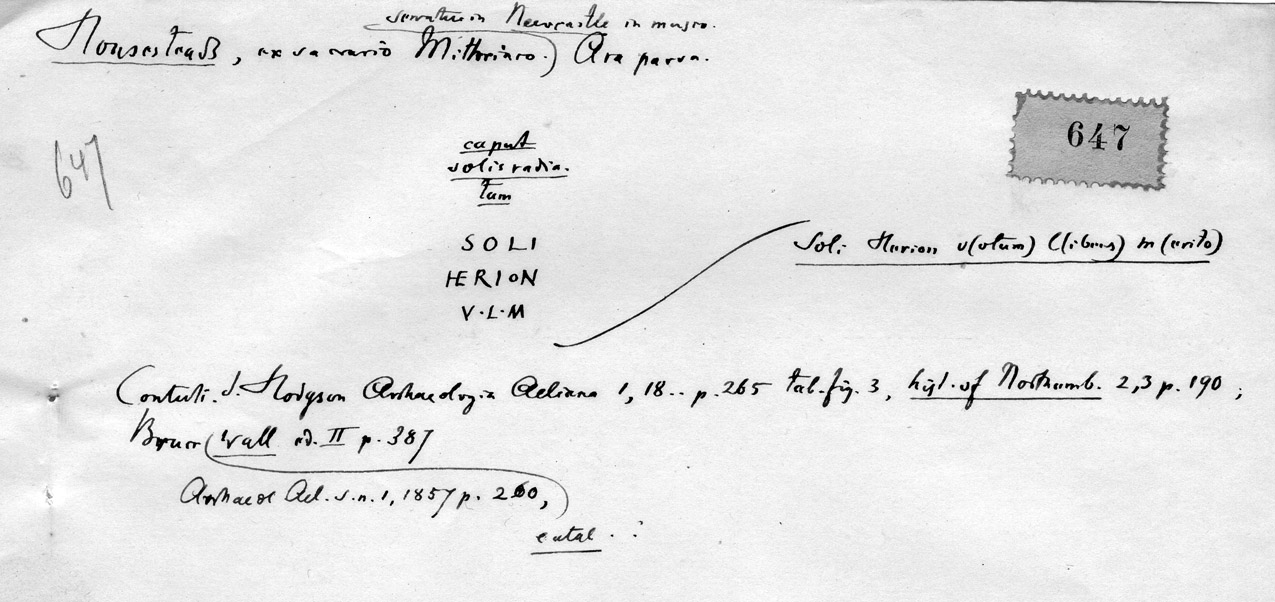 servatur in Newcastle in museo.
Housesteads, ex sacrario Mithriaco.) Ara parva.
647
647
caput
solis radia.
tum
SOLI
HERION
V·L·M
Soli Herion v(otum) l(ibens) m(erito)
Contuli. J. Hodgson Archaeologia Aeliana 1, 18.. p. 265 tab. fig. 3, hist. of Northumb. 2,3 p. 190;
Bruce wall ed. II p. 387
Archaeol Ael. s.n. 1, 1857 p. 260,
catal. . :